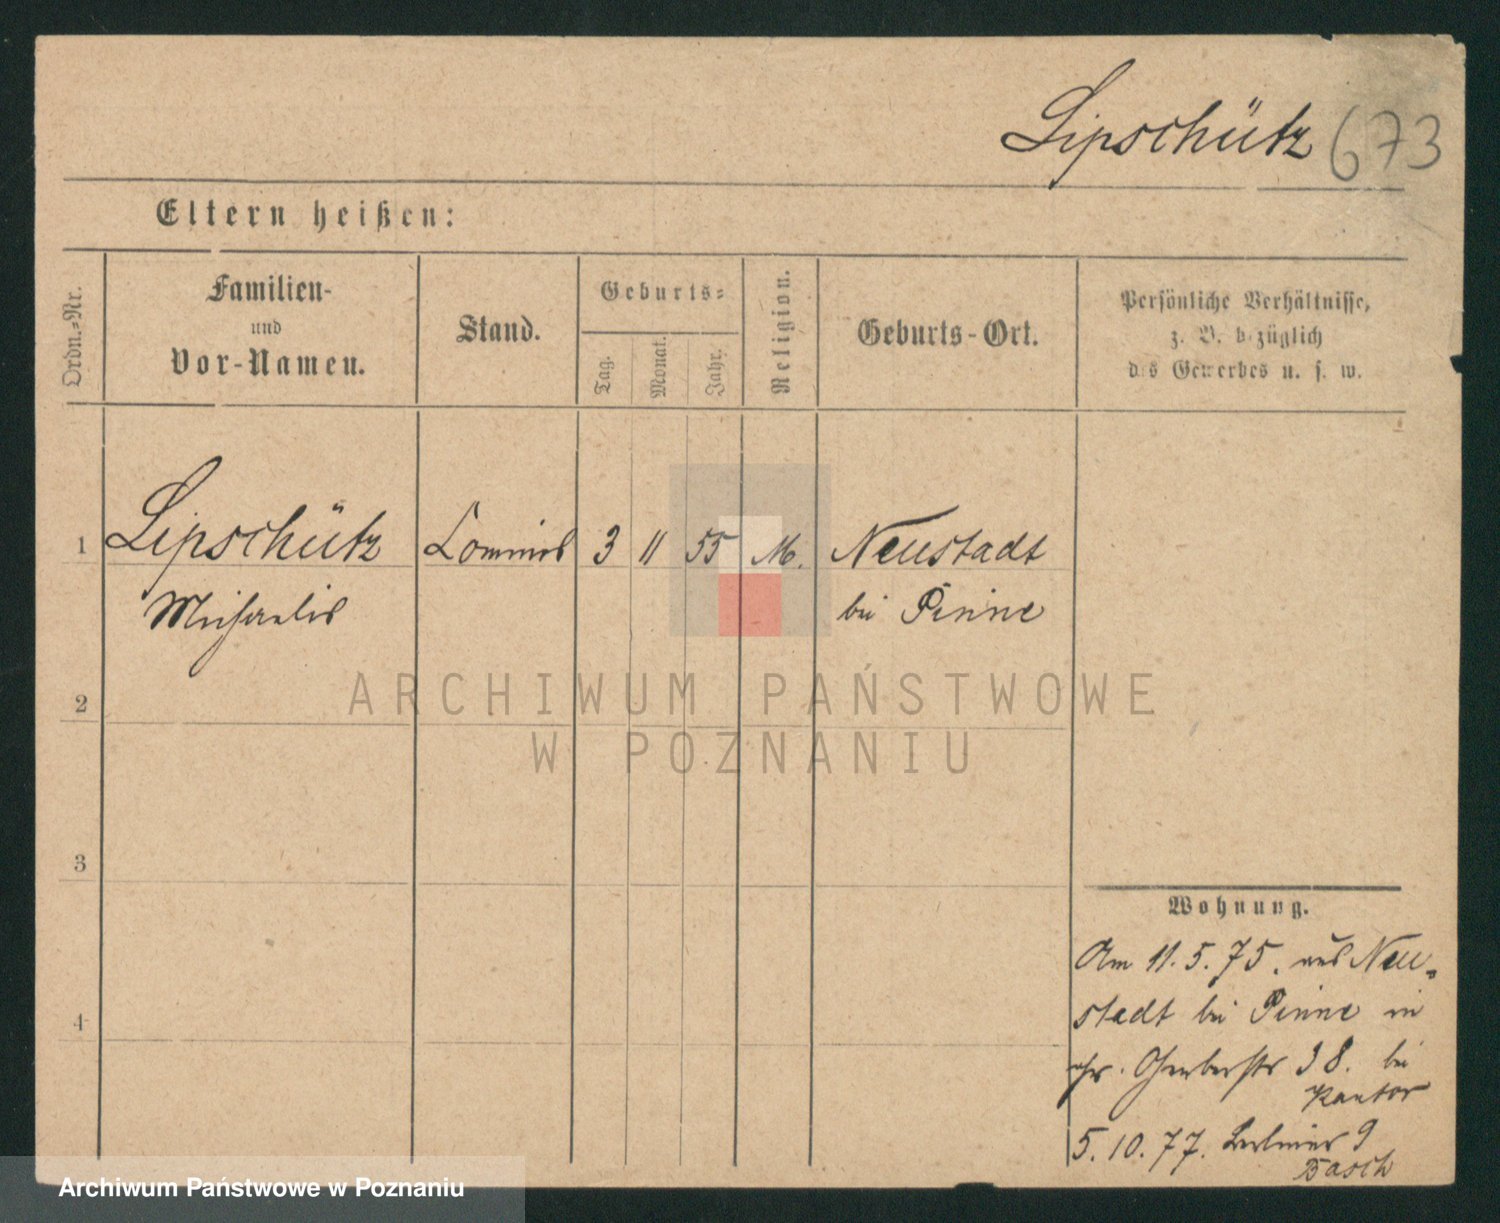 Lipschütz 673
Eltern heißen:
Ordn.-Nr.
Familien-
und
Vor-Namen.
Stand.
Geburts-
Tag.
Monat.
Jahr.
Religion.
Geburts-Ort.
Persönliche Verhältnisse,
z. B. bezüglich
des Gewerbes u. s. w.
1 Lipschütz Commis 3 11 55 M. Neustadt
Michaelis bei Pinne
2
3
4
Wohnung.
Am 11. 5. 75. aus Neu-
stadt bei Pinne in
38. bei
Kantor
5. 10. 77. Berliner 9
Basch
ARCHIWUM PAŃSTWOWE
W POZNANIU
Archiwum Państwowe w Poznaniu